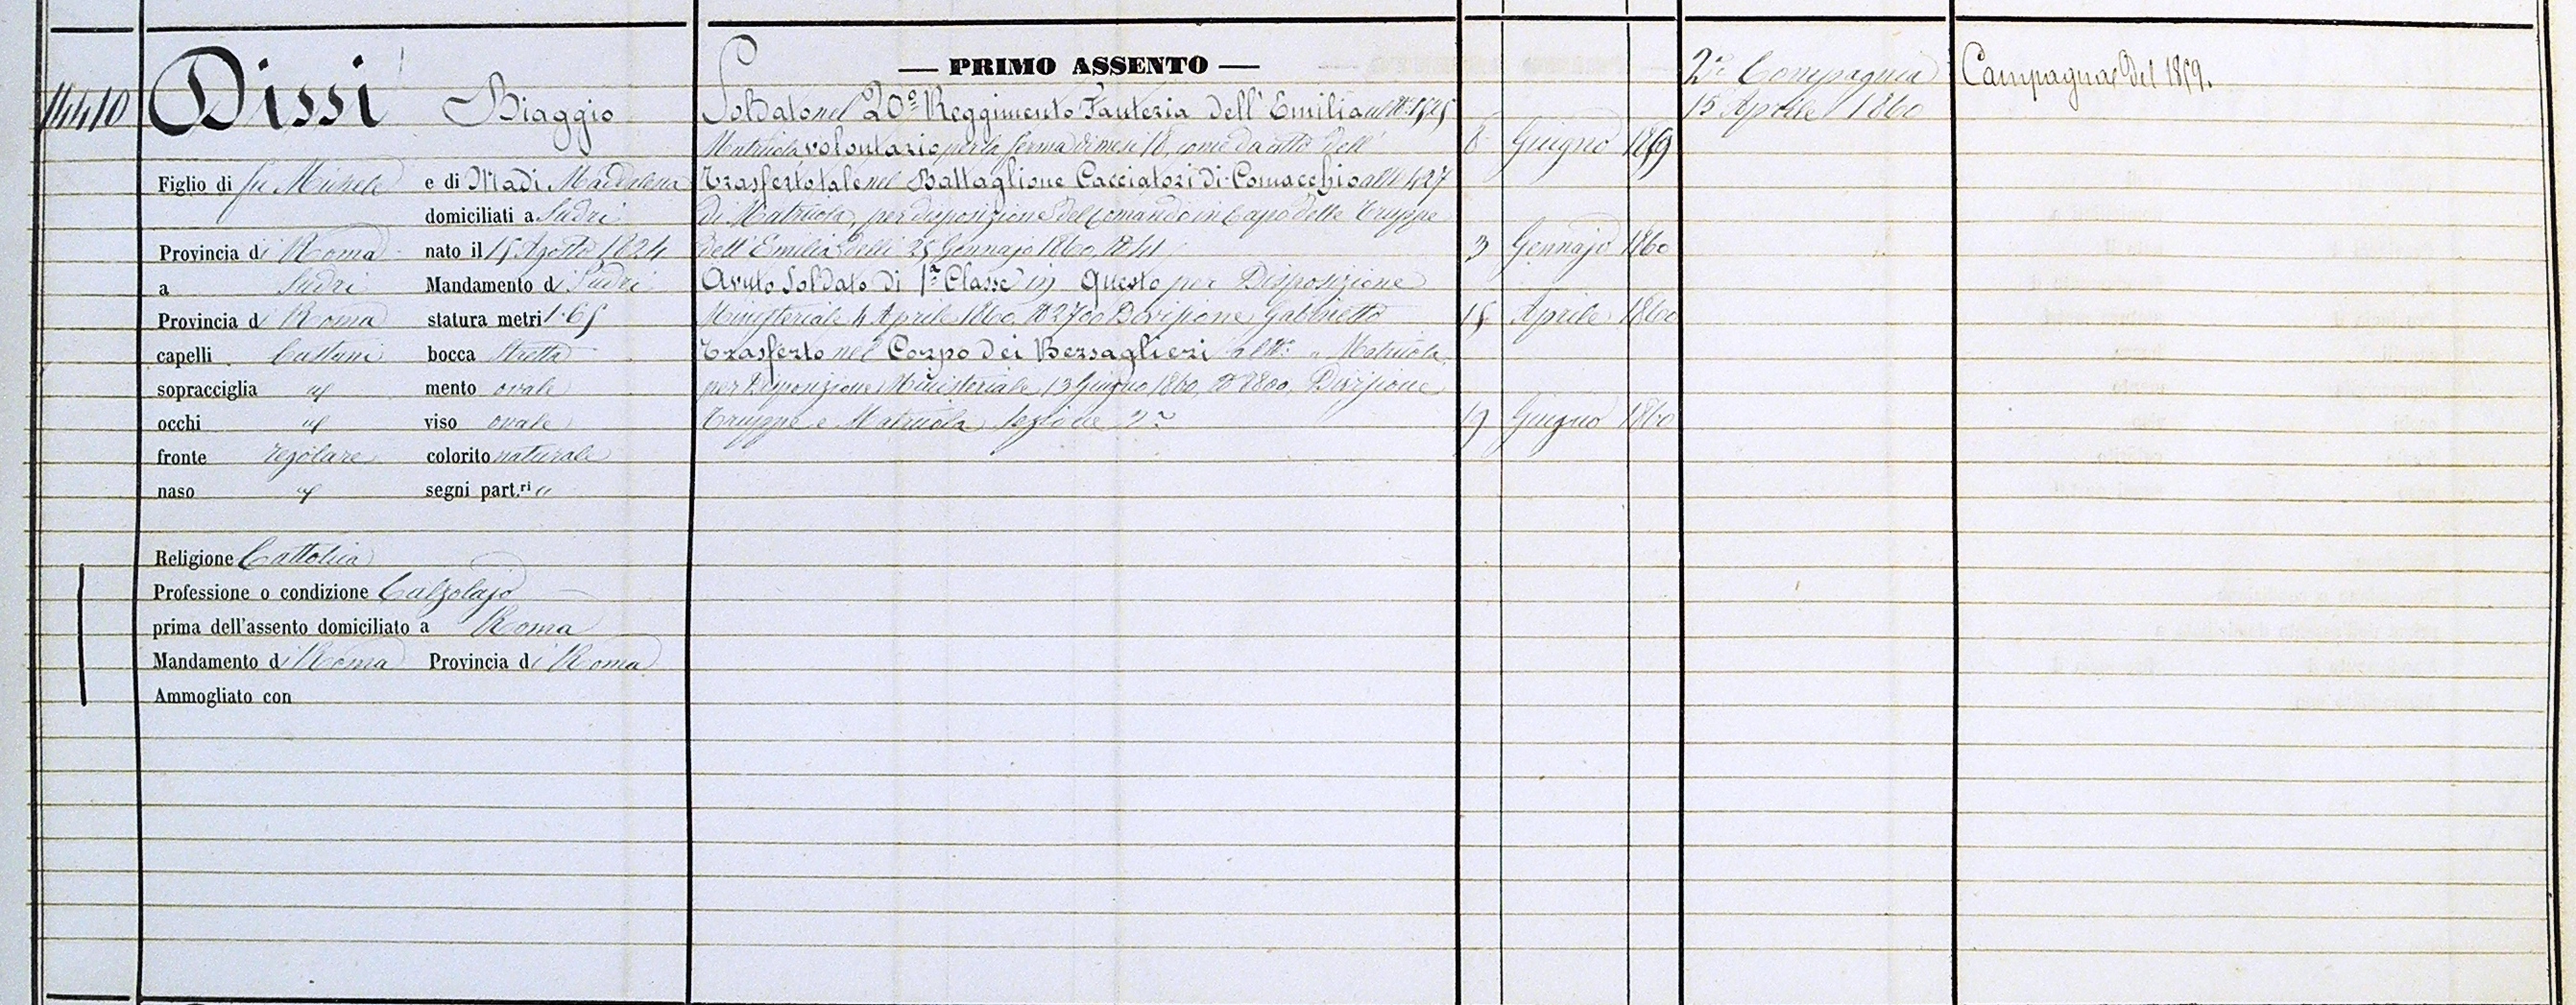 14410
Dissi Biaggio
Figlio di fu Michele e di Nadi Maddalena
domiciliati a Sudri
Provincia di Roma nato il 15 Agosto 1824
a Sudri Mandamento di Sudri
Provincia di Roma statura metri 1.65
capelli Castani bocca Stretta
sopracciglia id mento ovale
occhi id viso ovale
fronte regolare colorito naturale
naso id segni part.ri "
Religione Cattolica
Professione o condizione Calzolajo
prima dell'assento domiciliato a Roma
Mandamento di Roma Provincia di Roma
Ammogliato con
— PRIMO ASSENTO —
Soldato nel 20º Reggimento Fanteria dell'Emilia al Nº 1525
Matricola volontario per la ferma di mesi 18, come da atto dell' 8 Giugno 1859
Trasferto tale nel Battaglione Cacciatori di Comacchio al Nº 427
di Matricola, per disposizione del Comando in Capo delle Truppe
dell'Emilia delli 25 Gennajo 1860, Nº 41 3 Gennajo 1860
Avuto Soldato di 1ª Classe in Questo per Disposizione
Ministeriale 4 Aprile 1860, Nº 2700 Divisione Gabinetto 15 Aprile 1860
Trasferto nel Corpo dei Bersaglieri al Nº " Matricola,
per Disposizione Ministeriale 13 Giugno 1860, Nº 2800, Divisione
Truppe e Matricola Sezione 2ª 19 Giugno 1860
2ª Compagnia
15 Aprile 1860
Campagna del 1859.